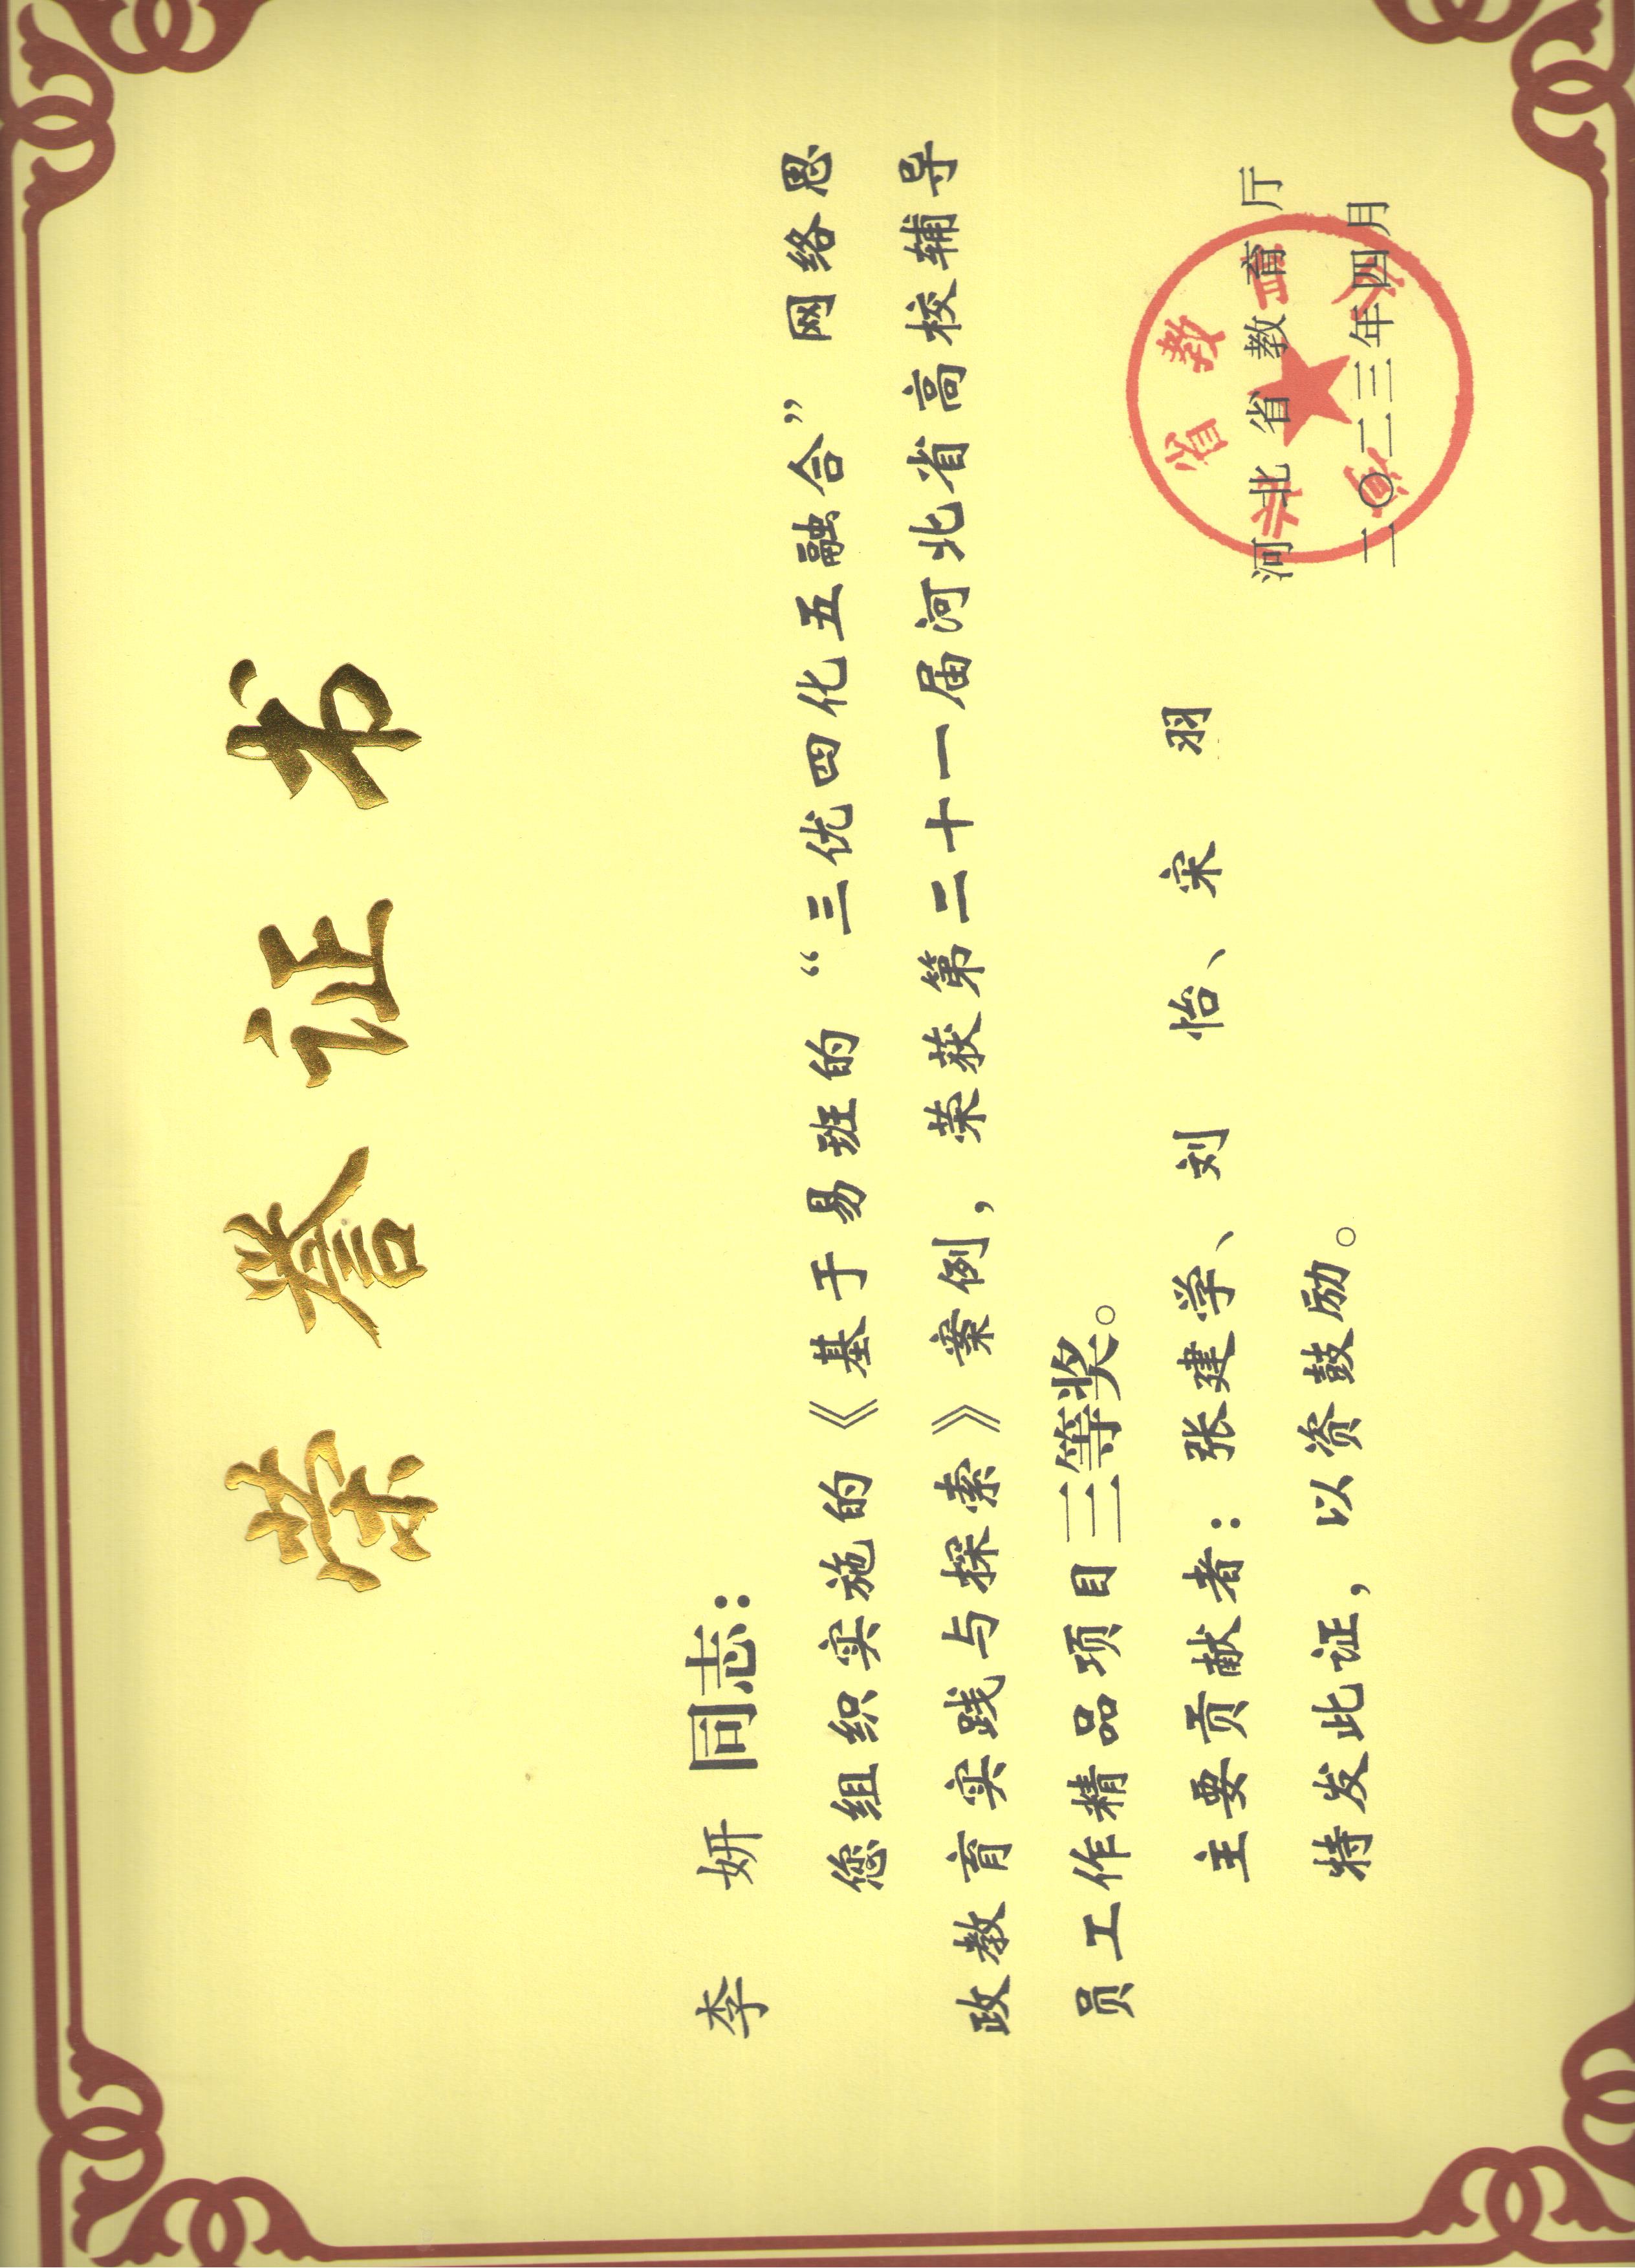 荣誉证书
李 妍 同志：
您组织实施的《基于易班的“三优四化五融合”网络思
政教育实践与探索》案例，荣获第二十一届河北省高校辅导
员工作精品项目三等奖。
主要贡献者：张建学、刘 怡、宋 羽
特发此证，以资鼓励。
河北省教育厅
二〇二三年四月
河北省教育厅